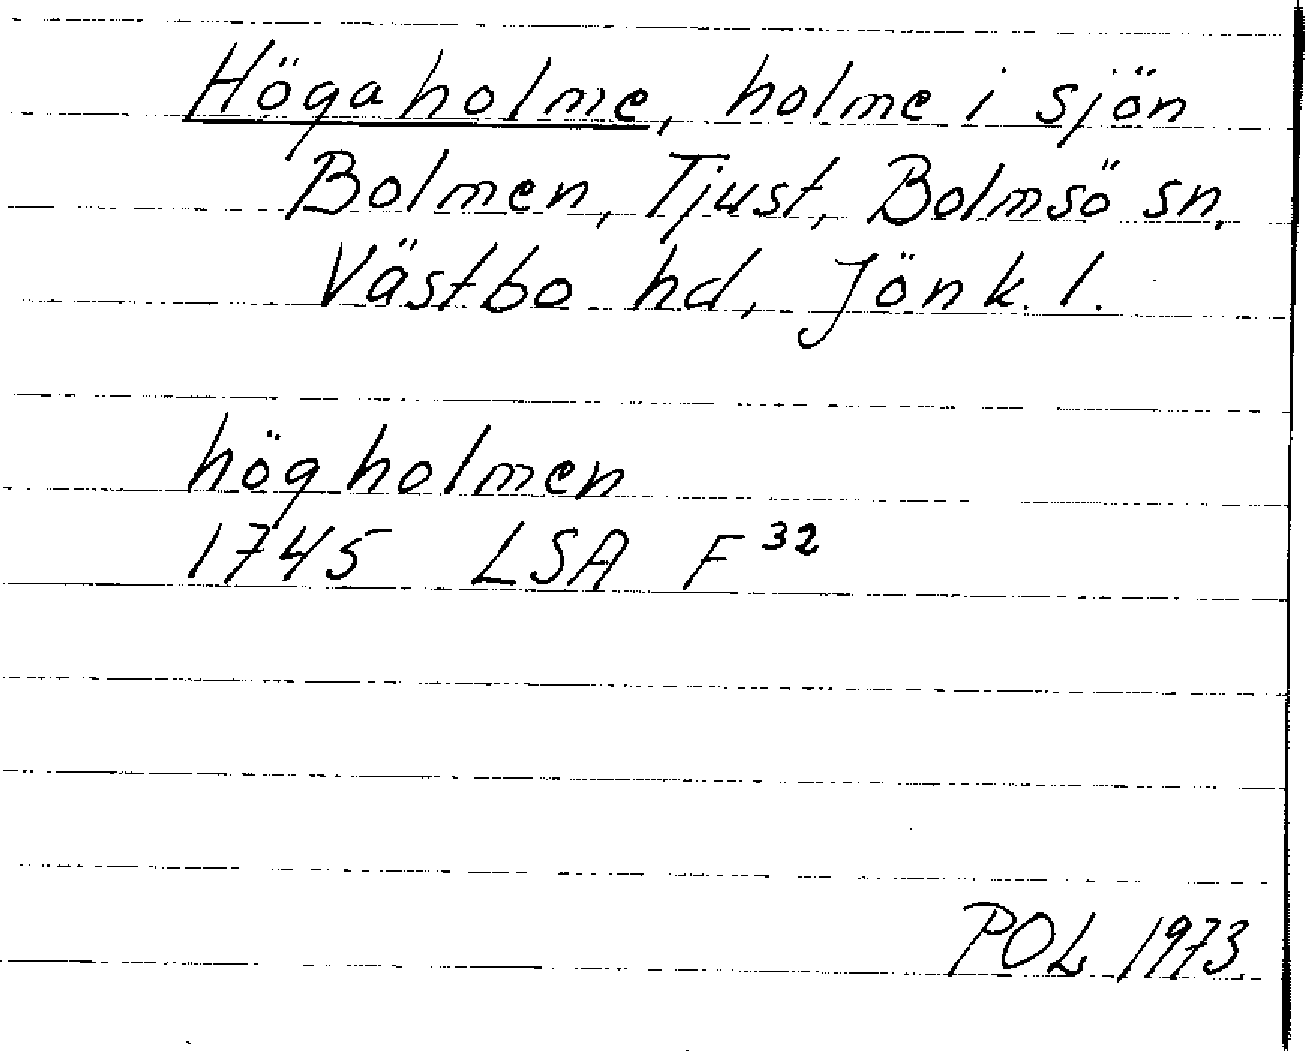 Högaholme, holme i sjön
Bolmen, Tjust, Bolmsö sn,
Västbo hd, Jönk. l.
högholmen
1745 LSA F 32
POL 1973